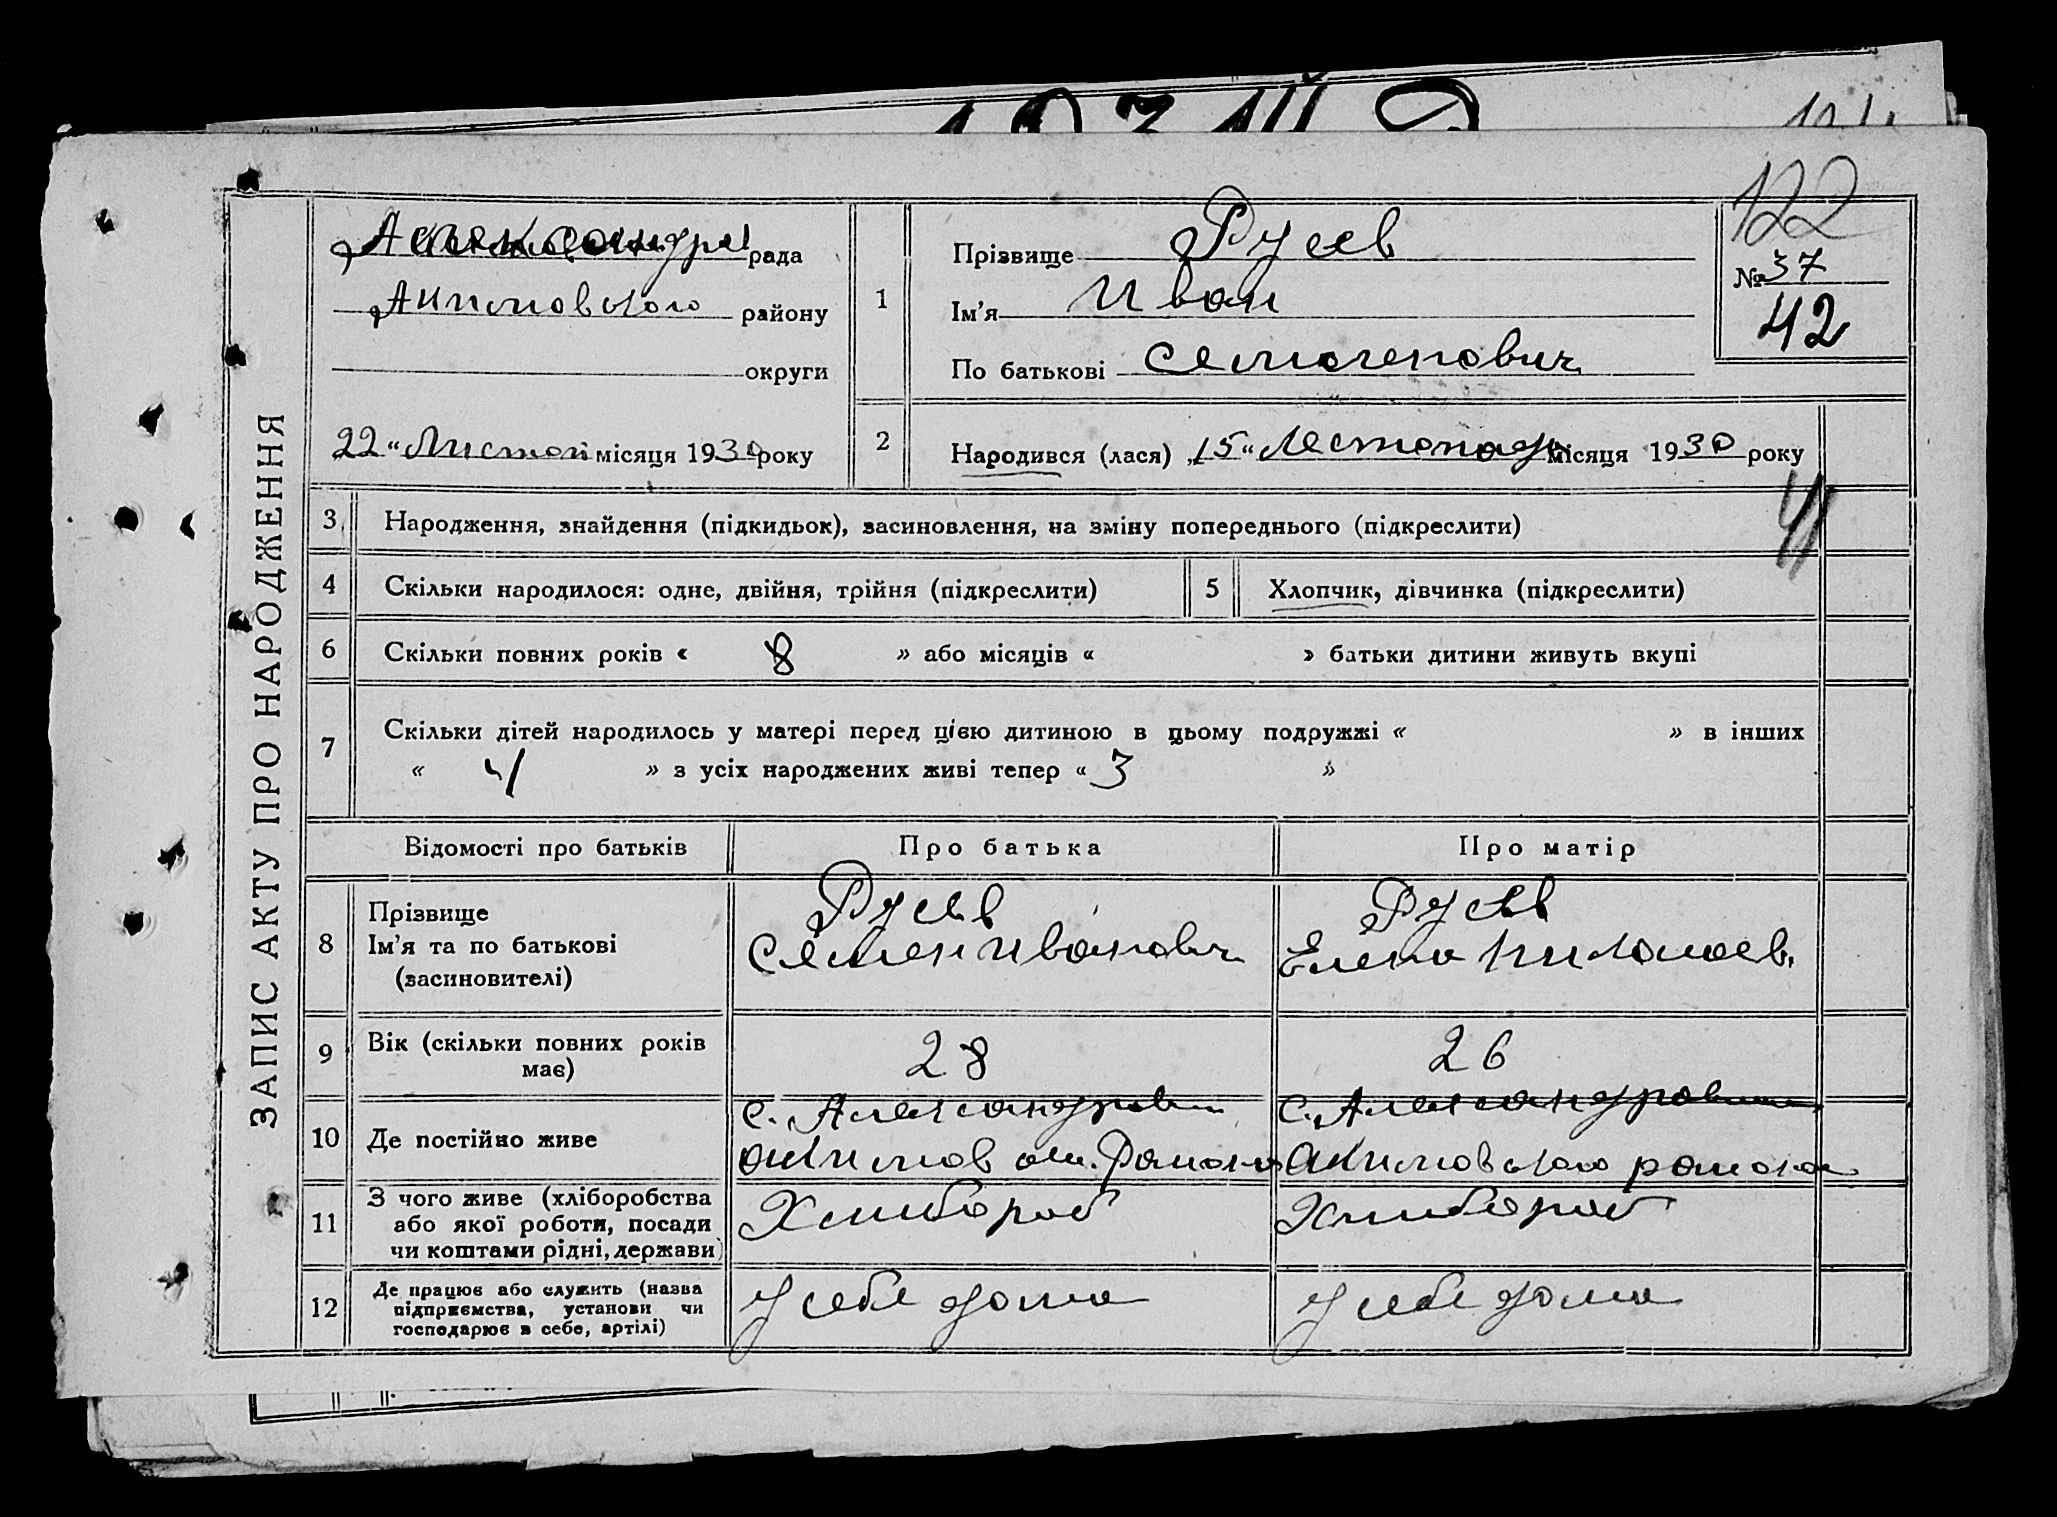 122
Александр рада
Акимовського району
округи
22 " Листоп місяця 1930 року
ЗАПИС АКТУ ПРО НАРОДЖЕННЯ
1
Прізвище Русев
Ім'я Иван
По батькові Семенович
№ 37
42
2 Народився (лася) „15" Лестопадь місяця 1930 року
4
3 Народження, знайдення (підкидьок), засиновлення, на зміну попереднього (підкреслити)
4 Скільки народилося: одне, двійня, трійня (підкреслити)
5 Хлопчик, дівчинка (підкреслити)
6 Скільки повних років « 8 » або місяців « » батьки дитини живуть вкупі
7 Скільки дітей народилось у матері перед цією дитиною в цьому подружжі « » в інших
« 4 » з усіх народжених живі тепер « 3 »
Відомості про батьків Про батька Про матір
8 Прізвище
Ім'я та по батькові
(засиновителі)
Русев
Семен Иванович
Русев
Елена Николаев.
9 Вік (скільки повних років
має)
28
26
10 Де постійно живе
с. Александровки
Акимов
с. Александровки
Акимовского района
11 З чого живе (хліборобства
або якої роботи, посади
чи коштами рідні, держави)
Хлибороб
Хлибороб
12 Де працює або служить (назва
підприємства, установи чи
господарює в себе, артілі)
У себе дома
У себе дома